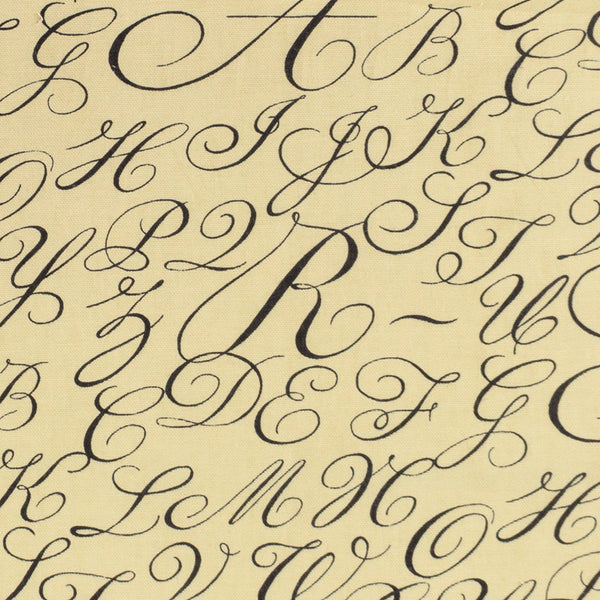 G A B C
H I J K L
Y P Q R S T U
Z ~
B C D E F G
K L M N O H